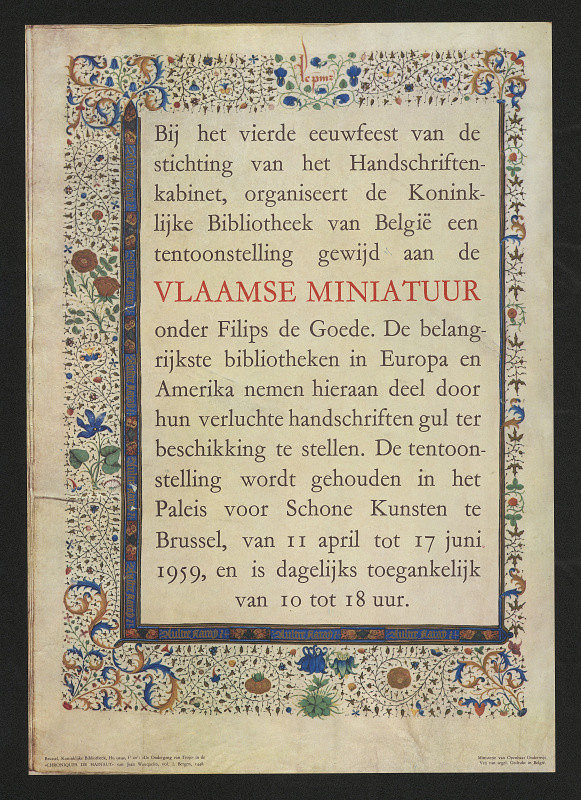 Bij het vierde eeuwfeest van de
stichting van het Handschriften-
kabinet, organiseert de Konink-
lijke Bibliotheek van België een
tentoonstelling gewijd aan de
VLAAMSE MINIATUUR
onder Filips de Goede. De belang-
rijkste bibliotheken in Europa en
Amerika nemen hieraan deel door
hun verluchte handschriften gul ter
beschikking te stellen. De tentoon-
stelling wordt gehouden in het
Paleis voor Schone Kunsten te
Brussel, van 11 april tot 17 juni
1959, en is dagelijks toegankelijk
van 10 tot 18 uur.
Brussel, Koninklijke Bibliotheek, Hs. De Ondergang van Troje in de
«CHRONIQUES DE HAINAUT» van Jean Wauquelin, vol. I. Bergen, 1448.
Ministerie van Openbaar Onderwijs
Vrij van zegel. Gedrukt in België.